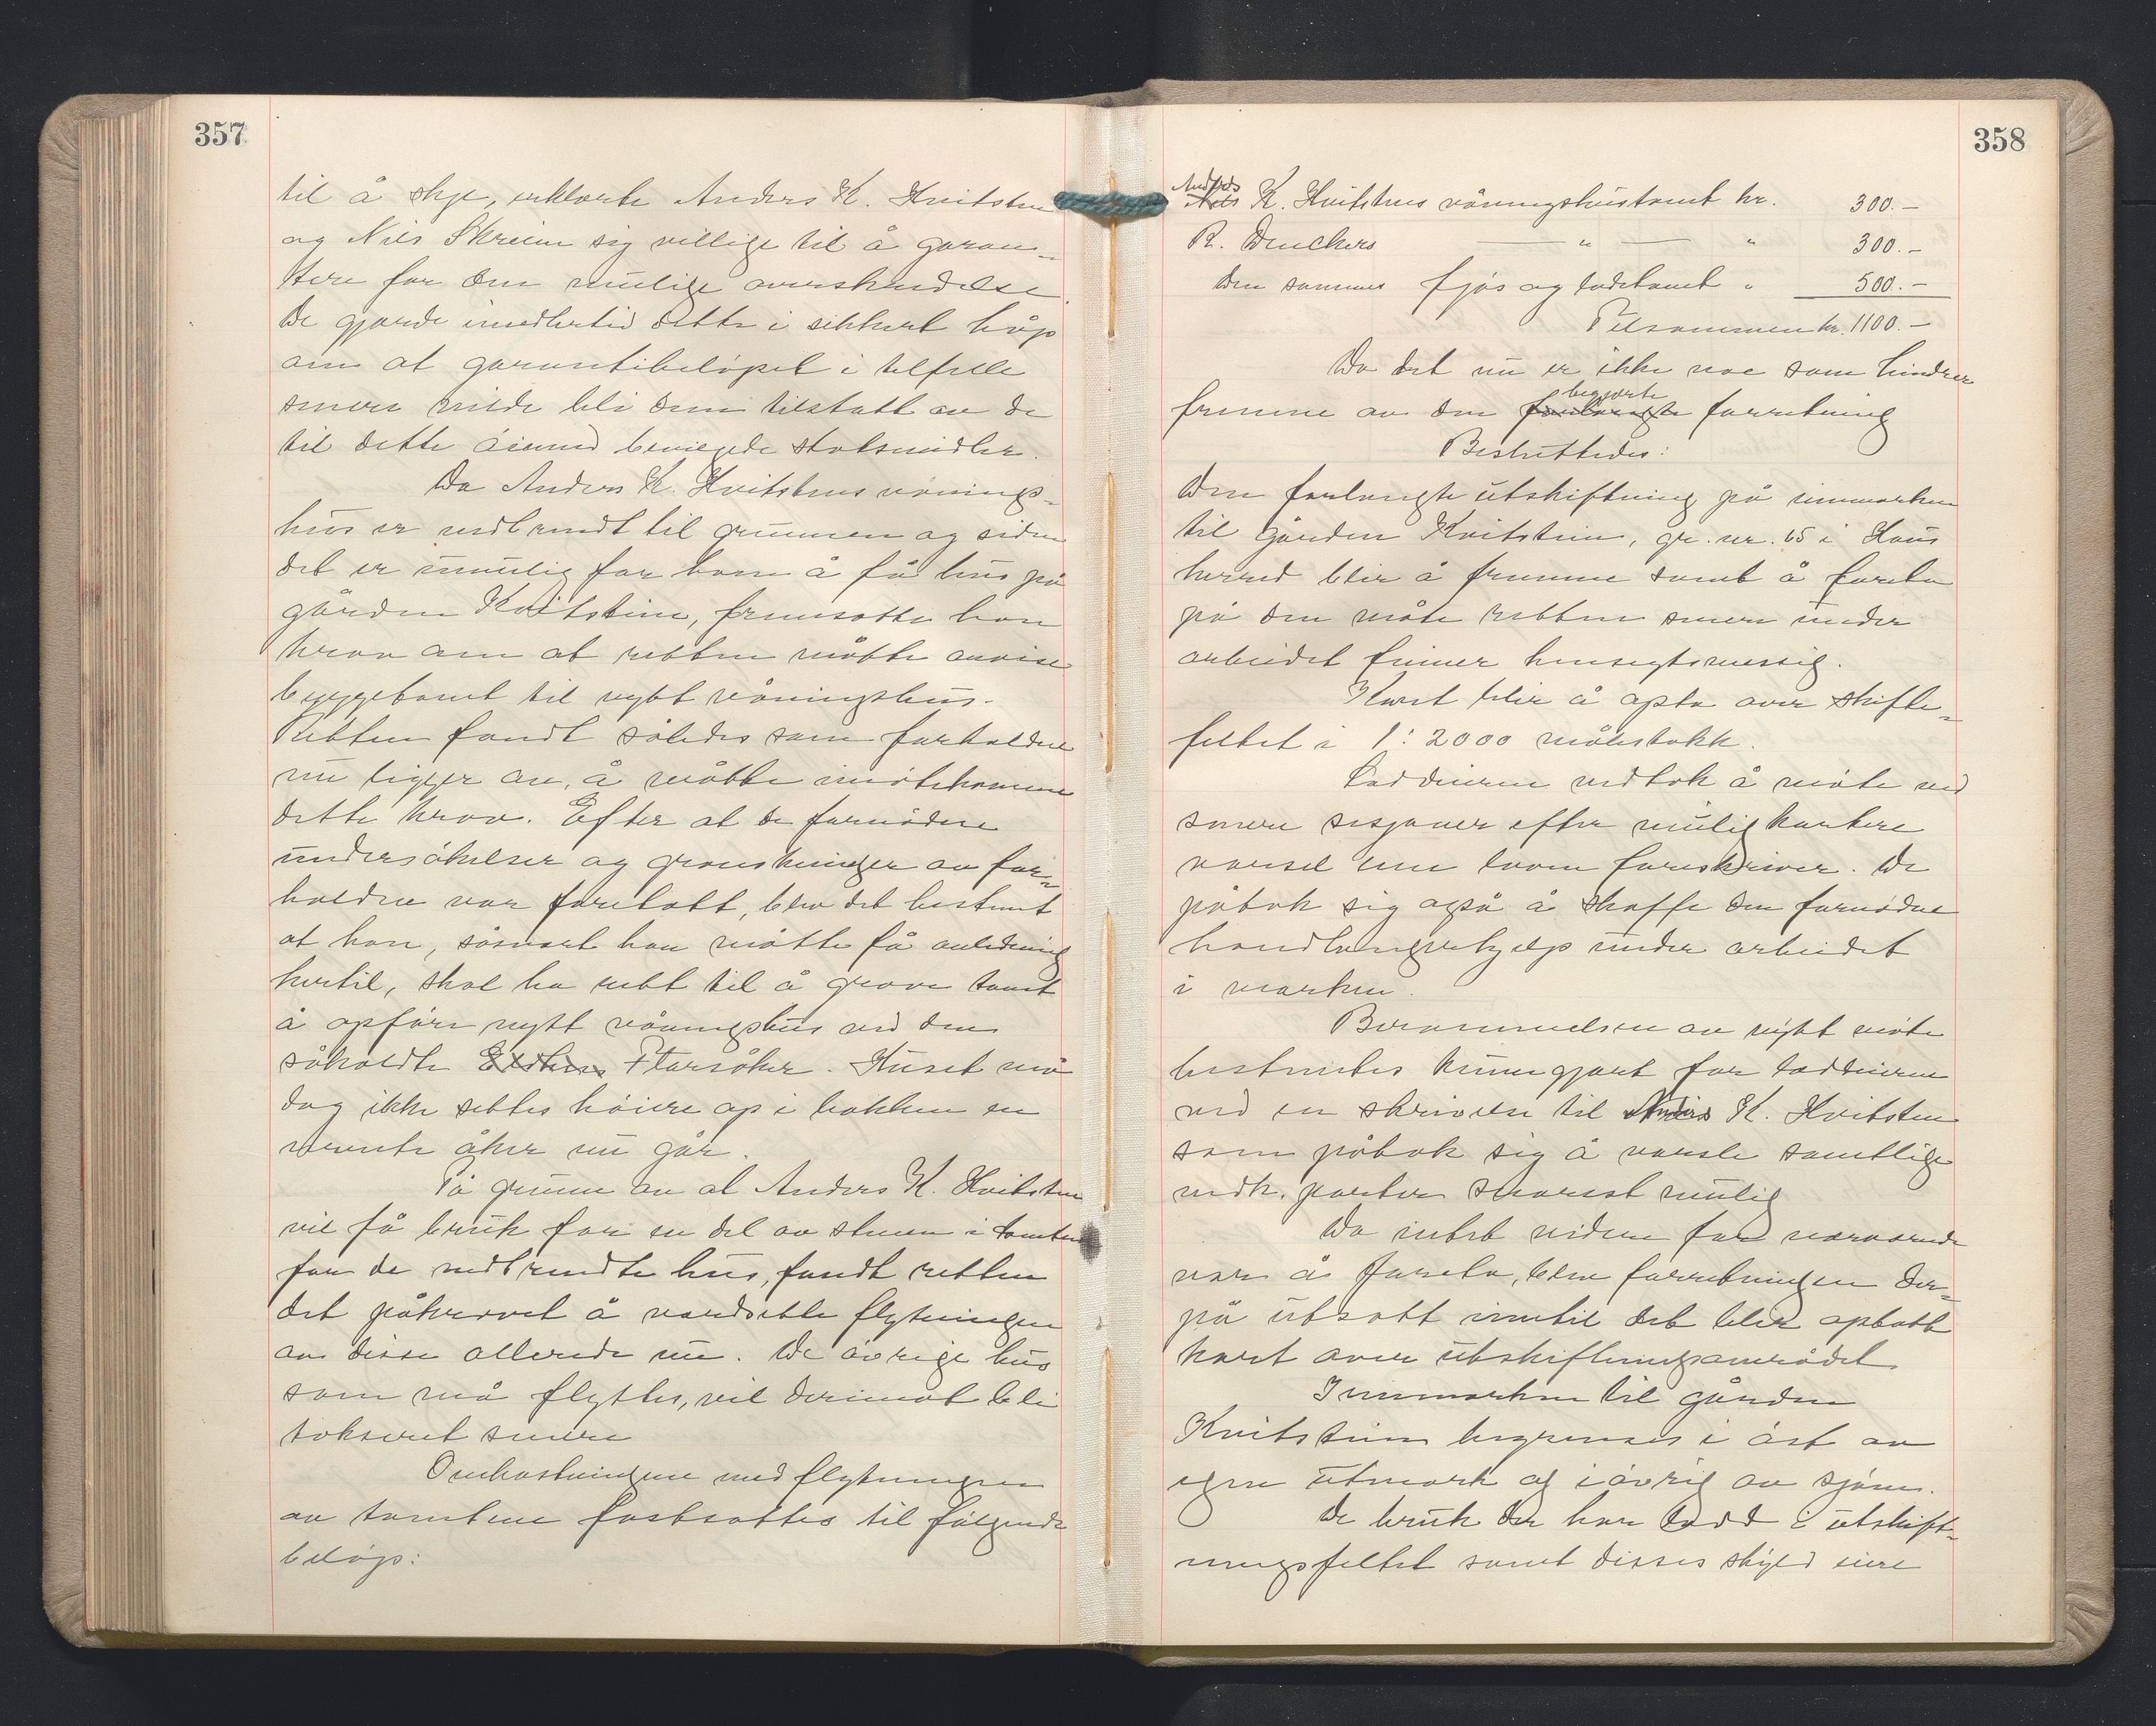 357
til å skje, erklærte Anders K. Kvitsten
og Nils Skreien sig villige til å garan-
tere for den mulige overskridelse.
De gjorde imidlertid dette i sikkert håp
om at garantibeløpet i tilfelle
senere vilde bli dem tilstått av de
til dette öiemed bevilgede statsmidler.
Da Anders K. Kvitstens vånings-
hus er nedbrendt til grunnen og siden
det er umulig for ham å få hus på
gården Kvitstein, fremsatte han
krav om at retten måtte anvise
byggetomt til nytt våningshus.
Retten fandt således som forholdene
nu ligger an, å måtte imötekomme
dette krav. Efter at de fornödne
undersökelser og granskninger av for-
holdene var foretatt, blev det bestemt
at han, såsnart han måtte få anledning
hertil, skal ha rett til å grave tomt
å opföre nytt våningshus ved den
såkaldte Flarsåker. Huset må
dog ikke settes höiere op i bakken en
nevnte åker nu går.
På grunn av at Anders K. Kvitsten
vil få bruk for en del av stenen i tomten
for de nedbrendte hus, fandt retten
det påkrevet å verdsette flytningen
av disse allerede nu. De övrige hus
som må flyttes, vil derimot bli
taksert senere
Omkostningene med flytningen
av tomtene fastsattes til fölgende
belöp:
358
Anders
Nils K. Kvitstens våningshustomt kr. 300.-
R. Druckers — " — " 300.-
Den sammes fjös og ladetomt " 500.-
Tilsammen kr. 1100.-
Da det nu er ikke noe som hindrer
begjærte
fremme av den forlangte forretning
Besluttedes:
Den forlangte utskiftning på innmarken
til gården Kvitstein, gr. nr. 65 i Haus
herred blir å fremme samt å foreta
på den måte retten senere under
arbeidet finner hensigtsmessig.
Kart blir å opta over skifte-
feltet i 1:2000 målestokk.
Loddeierne vedtok å möte ved
senere sesjoner efter mulig kortere
varsel enn loven foreskriver. De
påtok sig også å skaffe den fornödne
handlangerhjelp under arbeidet
i marken.
Berammelsen av nytt möte
bestemtes kunngjort for loddeierne
ved en skrivelse til Anders K. Kvitsten
som påtok sig å varsle samtlige
vedk. parter snarest mulig
Da intet videre for nærværende
var å foreta, blev forretningen der-
på utsatt inntil det blev optatt
kart over utskiftningsområdet
Innmarken til gården
Kvitstein begrenses i öst av
egen utmark og i övrig av sjöen.
De bruk der har lodd i utskift-
ningsfeltet samt disses skyld eiere